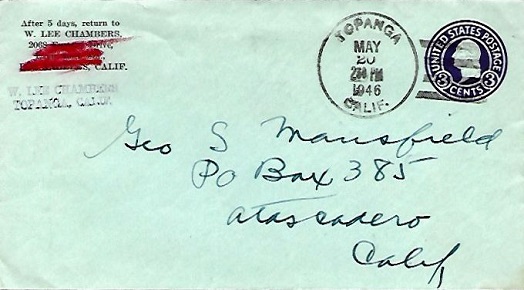 After 5 days, return to
W. LEE CHAMBERS,
CALIF.
W. LEE CHAMBERS
TOPANGA, CALIF.
TOPANGA
MAY
20
PM
1946
CALIF.
UNITED STATES POSTAGE
3 CENTS 3
Geo S Mansfield
PO Box 385
Atascadero
Calif,